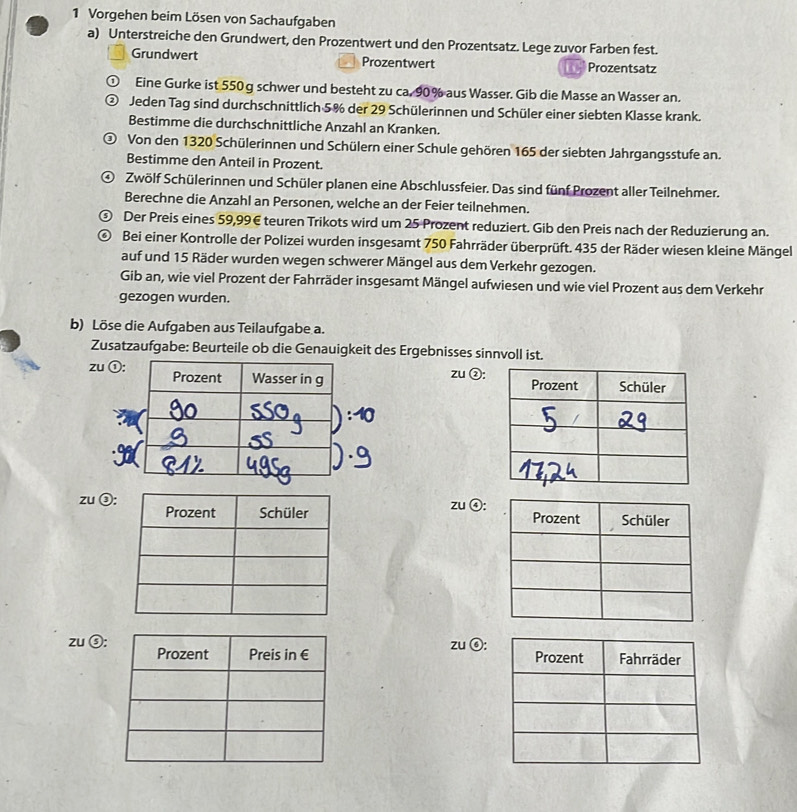 1 Vorgehen beim Lösen von Sachaufgaben
a) Unterstreiche den Grundwert, den Prozentwert und den Prozentsatz. Lege zuvor Farben fest.
Grundwert Prozentwert Prozentsatz
① Eine Gurke ist 550 g schwer und besteht zu ca. 90 % aus Wasser. Gib die Masse an Wasser an.
② Jeden Tag sind durchschnittlich 5 % der 29 Schülerinnen und Schüler einer siebten Klasse krank.
Bestimme die durchschnittliche Anzahl an Kranken.
③ Von den 1320 Schülerinnen und Schülern einer Schule gehören 165 der siebten Jahrgangsstufe an.
Bestimme den Anteil in Prozent.
④ Zwölf Schülerinnen und Schüler planen eine Abschlussfeier. Das sind fünf Prozent aller Teilnehmer.
Berechne die Anzahl an Personen, welche an der Feier teilnehmen.
⑤ Der Preis eines 59,99 € teuren Trikots wird um 25 Prozent reduziert. Gib den Preis nach der Reduzierung an.
⑥ Bei einer Kontrolle der Polizei wurden insgesamt 750 Fahrräder überprüft. 435 der Räder wiesen kleine Mängel
auf und 15 Räder wurden wegen schwerer Mängel aus dem Verkehr gezogen.
Gib an, wie viel Prozent der Fahrräder insgesamt Mängel aufwiesen und wie viel Prozent aus dem Verkehr
gezogen wurden.
b) Löse die Aufgaben aus Teilaufgabe a.
Zusatzaufgabe: Beurteile ob die Genauigkeit des Ergebnisses sinnvoll ist.
zu ①:
Prozent Wasser in g
90 550g
:10
9 55
·9
81% 495g
zu ②:
Prozent Schüler
5 29
17,24
zu ③:
Prozent Schüler
zu ④:
Prozent Schüler
zu ⑤:
Prozent Preis in €
zu ⑥:
Prozent Fahrräder